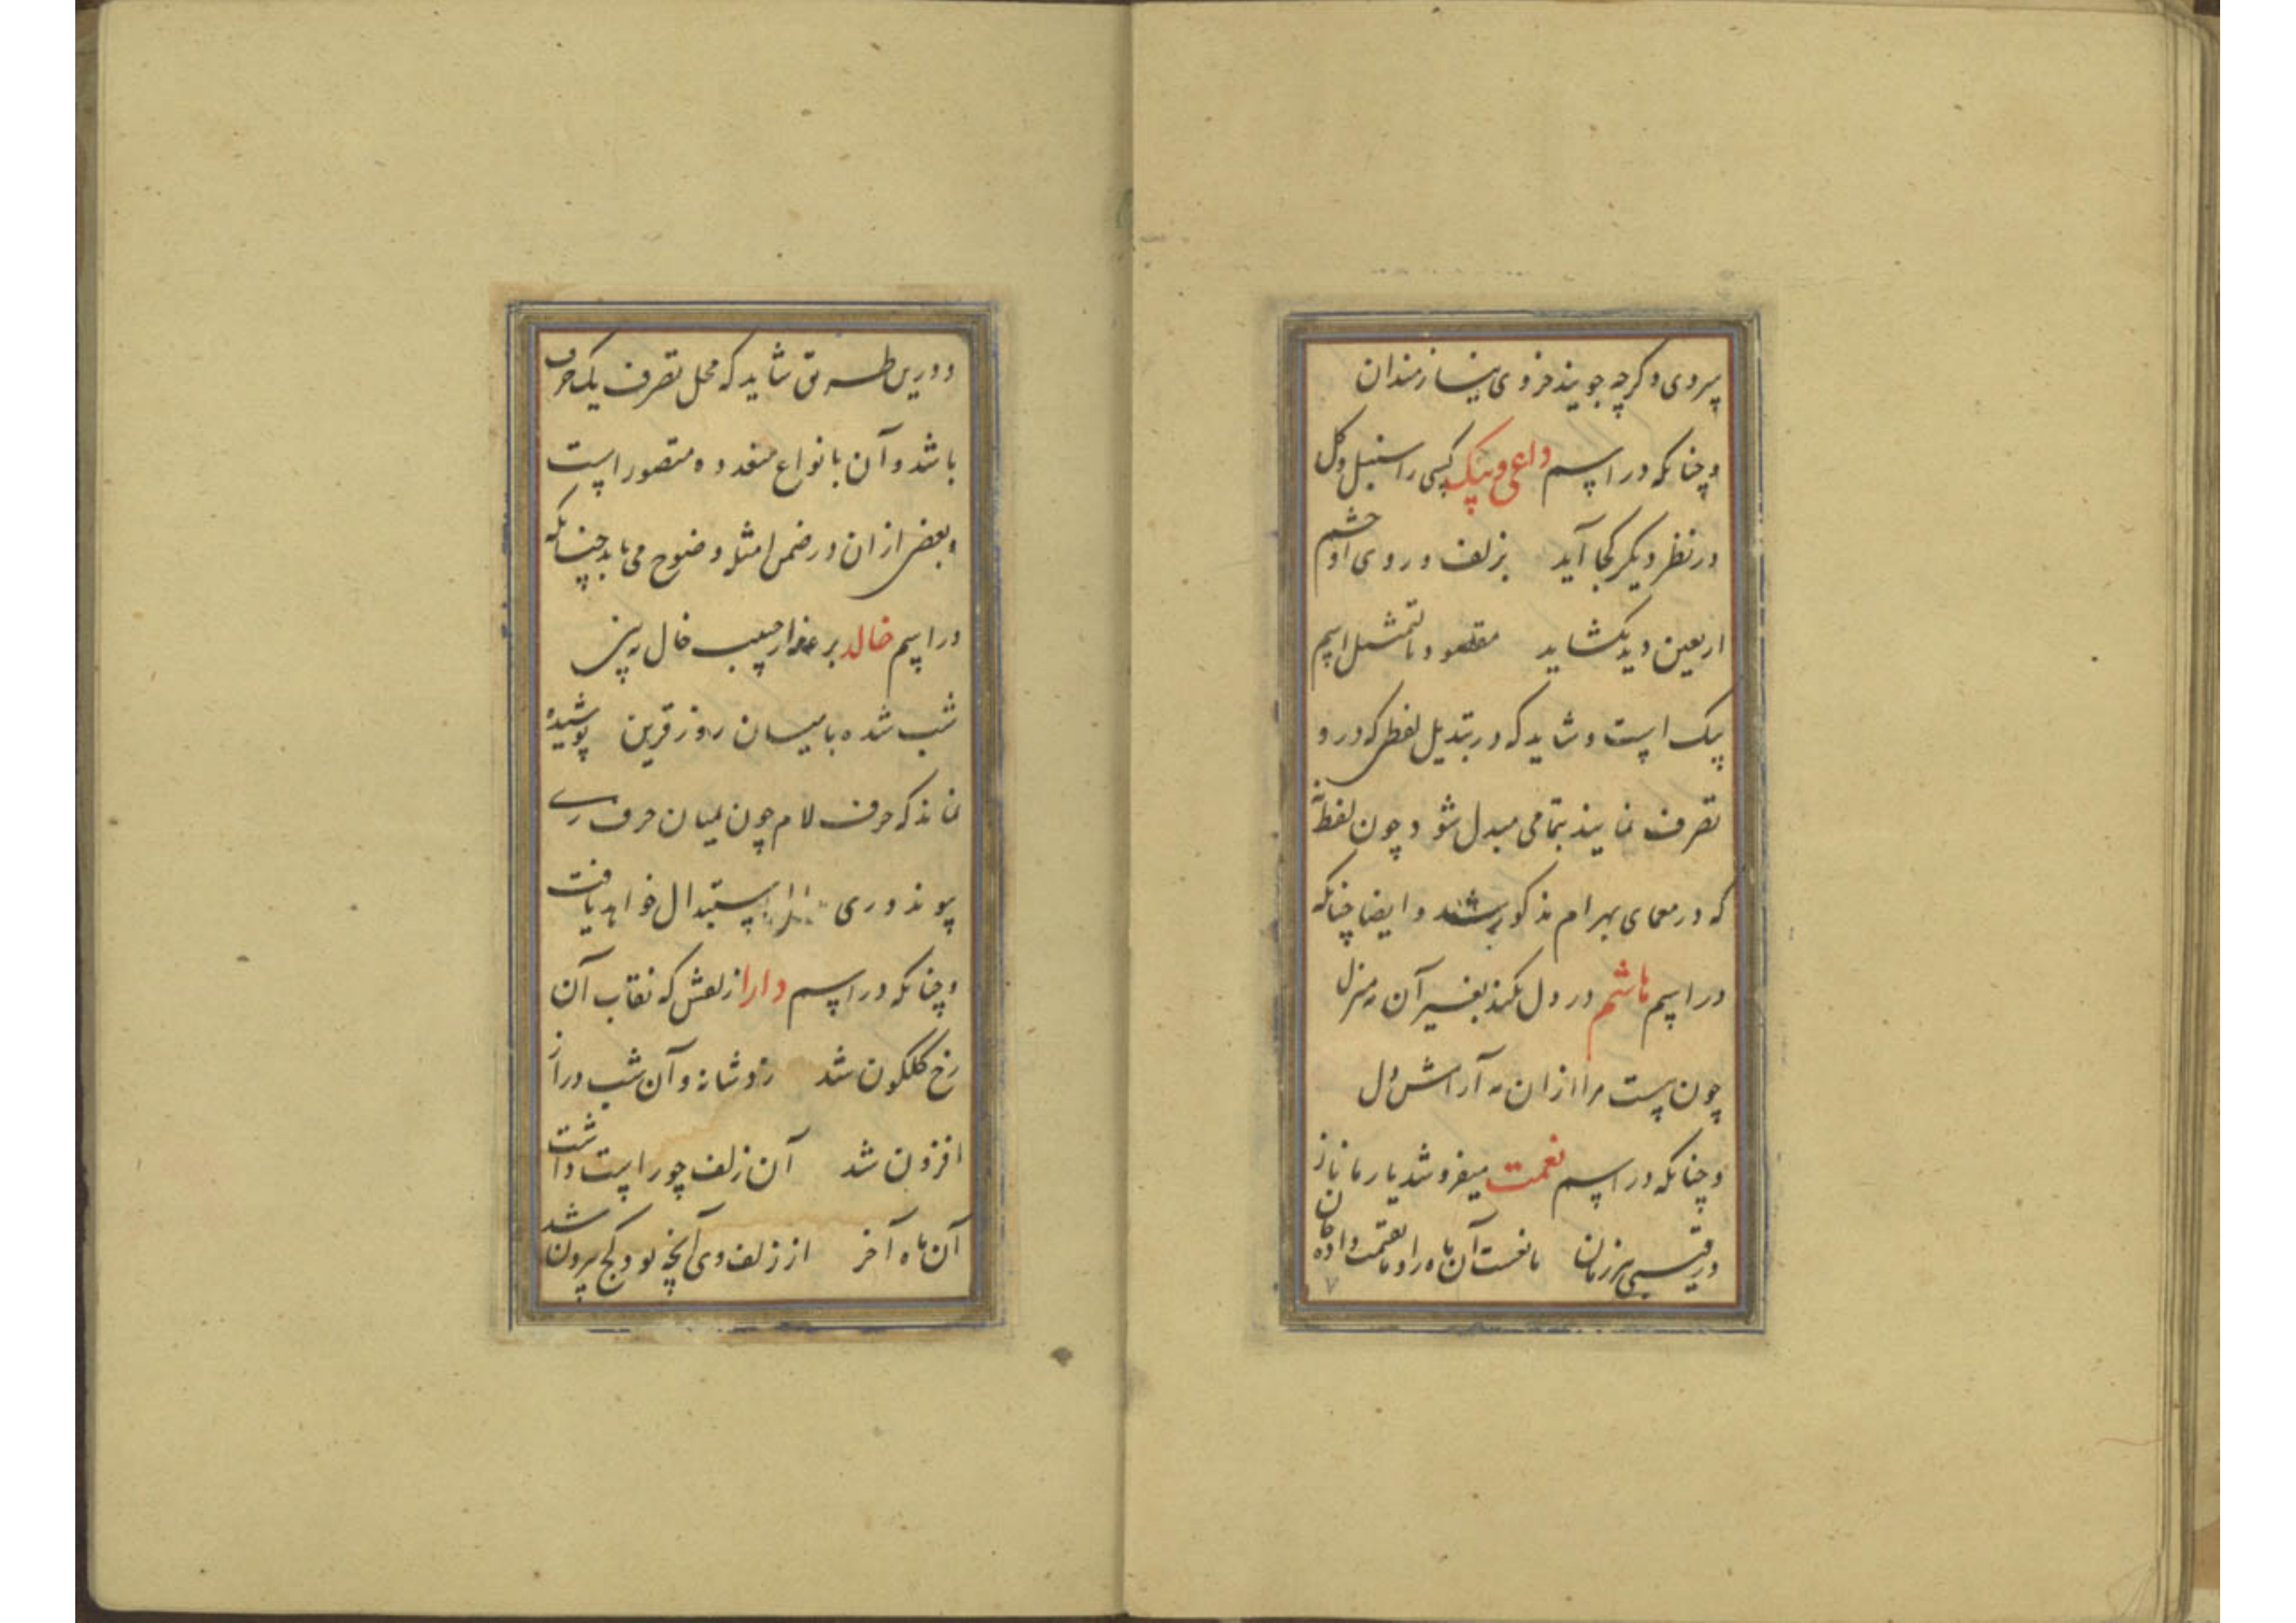 پیروی و کرچه جویند خروی نیازمندان
و چنانکه در اسم داعی و پیک کسی را سنبل و کل
در نظر دیکر کجا آید بزلف و روی او چشم
اربعین دید بکشاید مقصود بالتمثیل اسم
پیک است و شاید که در تبدیل لفظی که درو
تصرف نمایند بتمامی مبدل شود چون لفظ
که در معمای بهرام مذکور شد و ایضا چنانکه
در اسم هاشم در دل نکند بغیر آن مه منزل
چون پست مرا ازان مه آرامش دل
و چنانکه در اسم نعمت میفروشد یار ما ناز
و رقیبی هر زمان ما نخست آن ماه را و ما بقیمت داده جان
و درین طریق شاید که محل تصرف یک حرف
باشد و آن بانواع متعدده متصور است
و بعضی ازان در ضمن امثله وضوح می یابد چنانکه
در اسم خالد بر عذار حبیب خال ببین
شب شده با میان روز قرین پوشیده
نماند که حرف لام چون بمیان حرف ری
پیوندد ری باستبدال خواهد یافت
و چنانکه در اسم دارا زلفش که نقاب آن
رخ کلکون شد زد شانه و آن شب دراز
افزون شد آن زلف چو راست داشت
آن ماه آخر از زلف وی آنچه بود کج بیرون شد